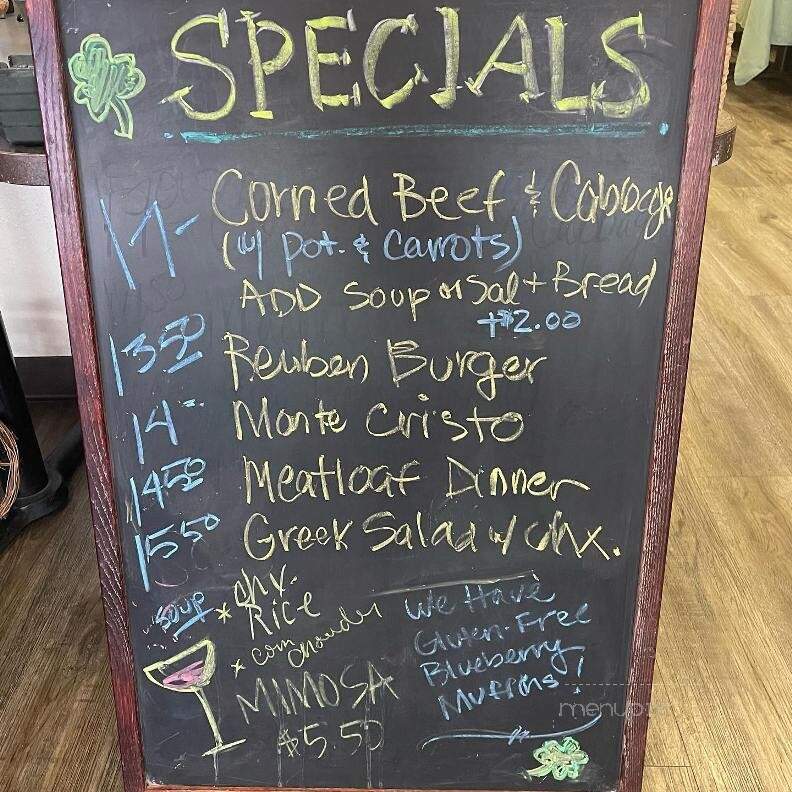 SPECIALS
17- Corned Beef & Cabbage
(w/ Pot. & Carrots)
ADD Soup or Sal + Bread
+$2.00
13.50 Reuben Burger
14- Monte Cristo
14.50 Meatloaf Dinner
15.50 Greek Salad w/ chx.
SOUP * chx.
Rice
* corn chowder
MIMOSA
$5.50
We Have
Gluten-Free
Blueberry
Muffins!
menupix